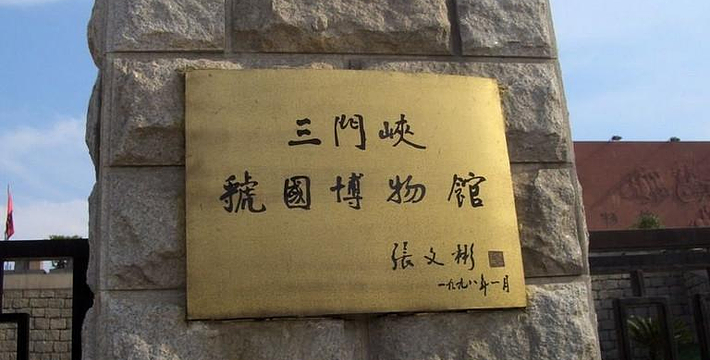 三門峽
虢國博物館
張文彬
一九九八年一月